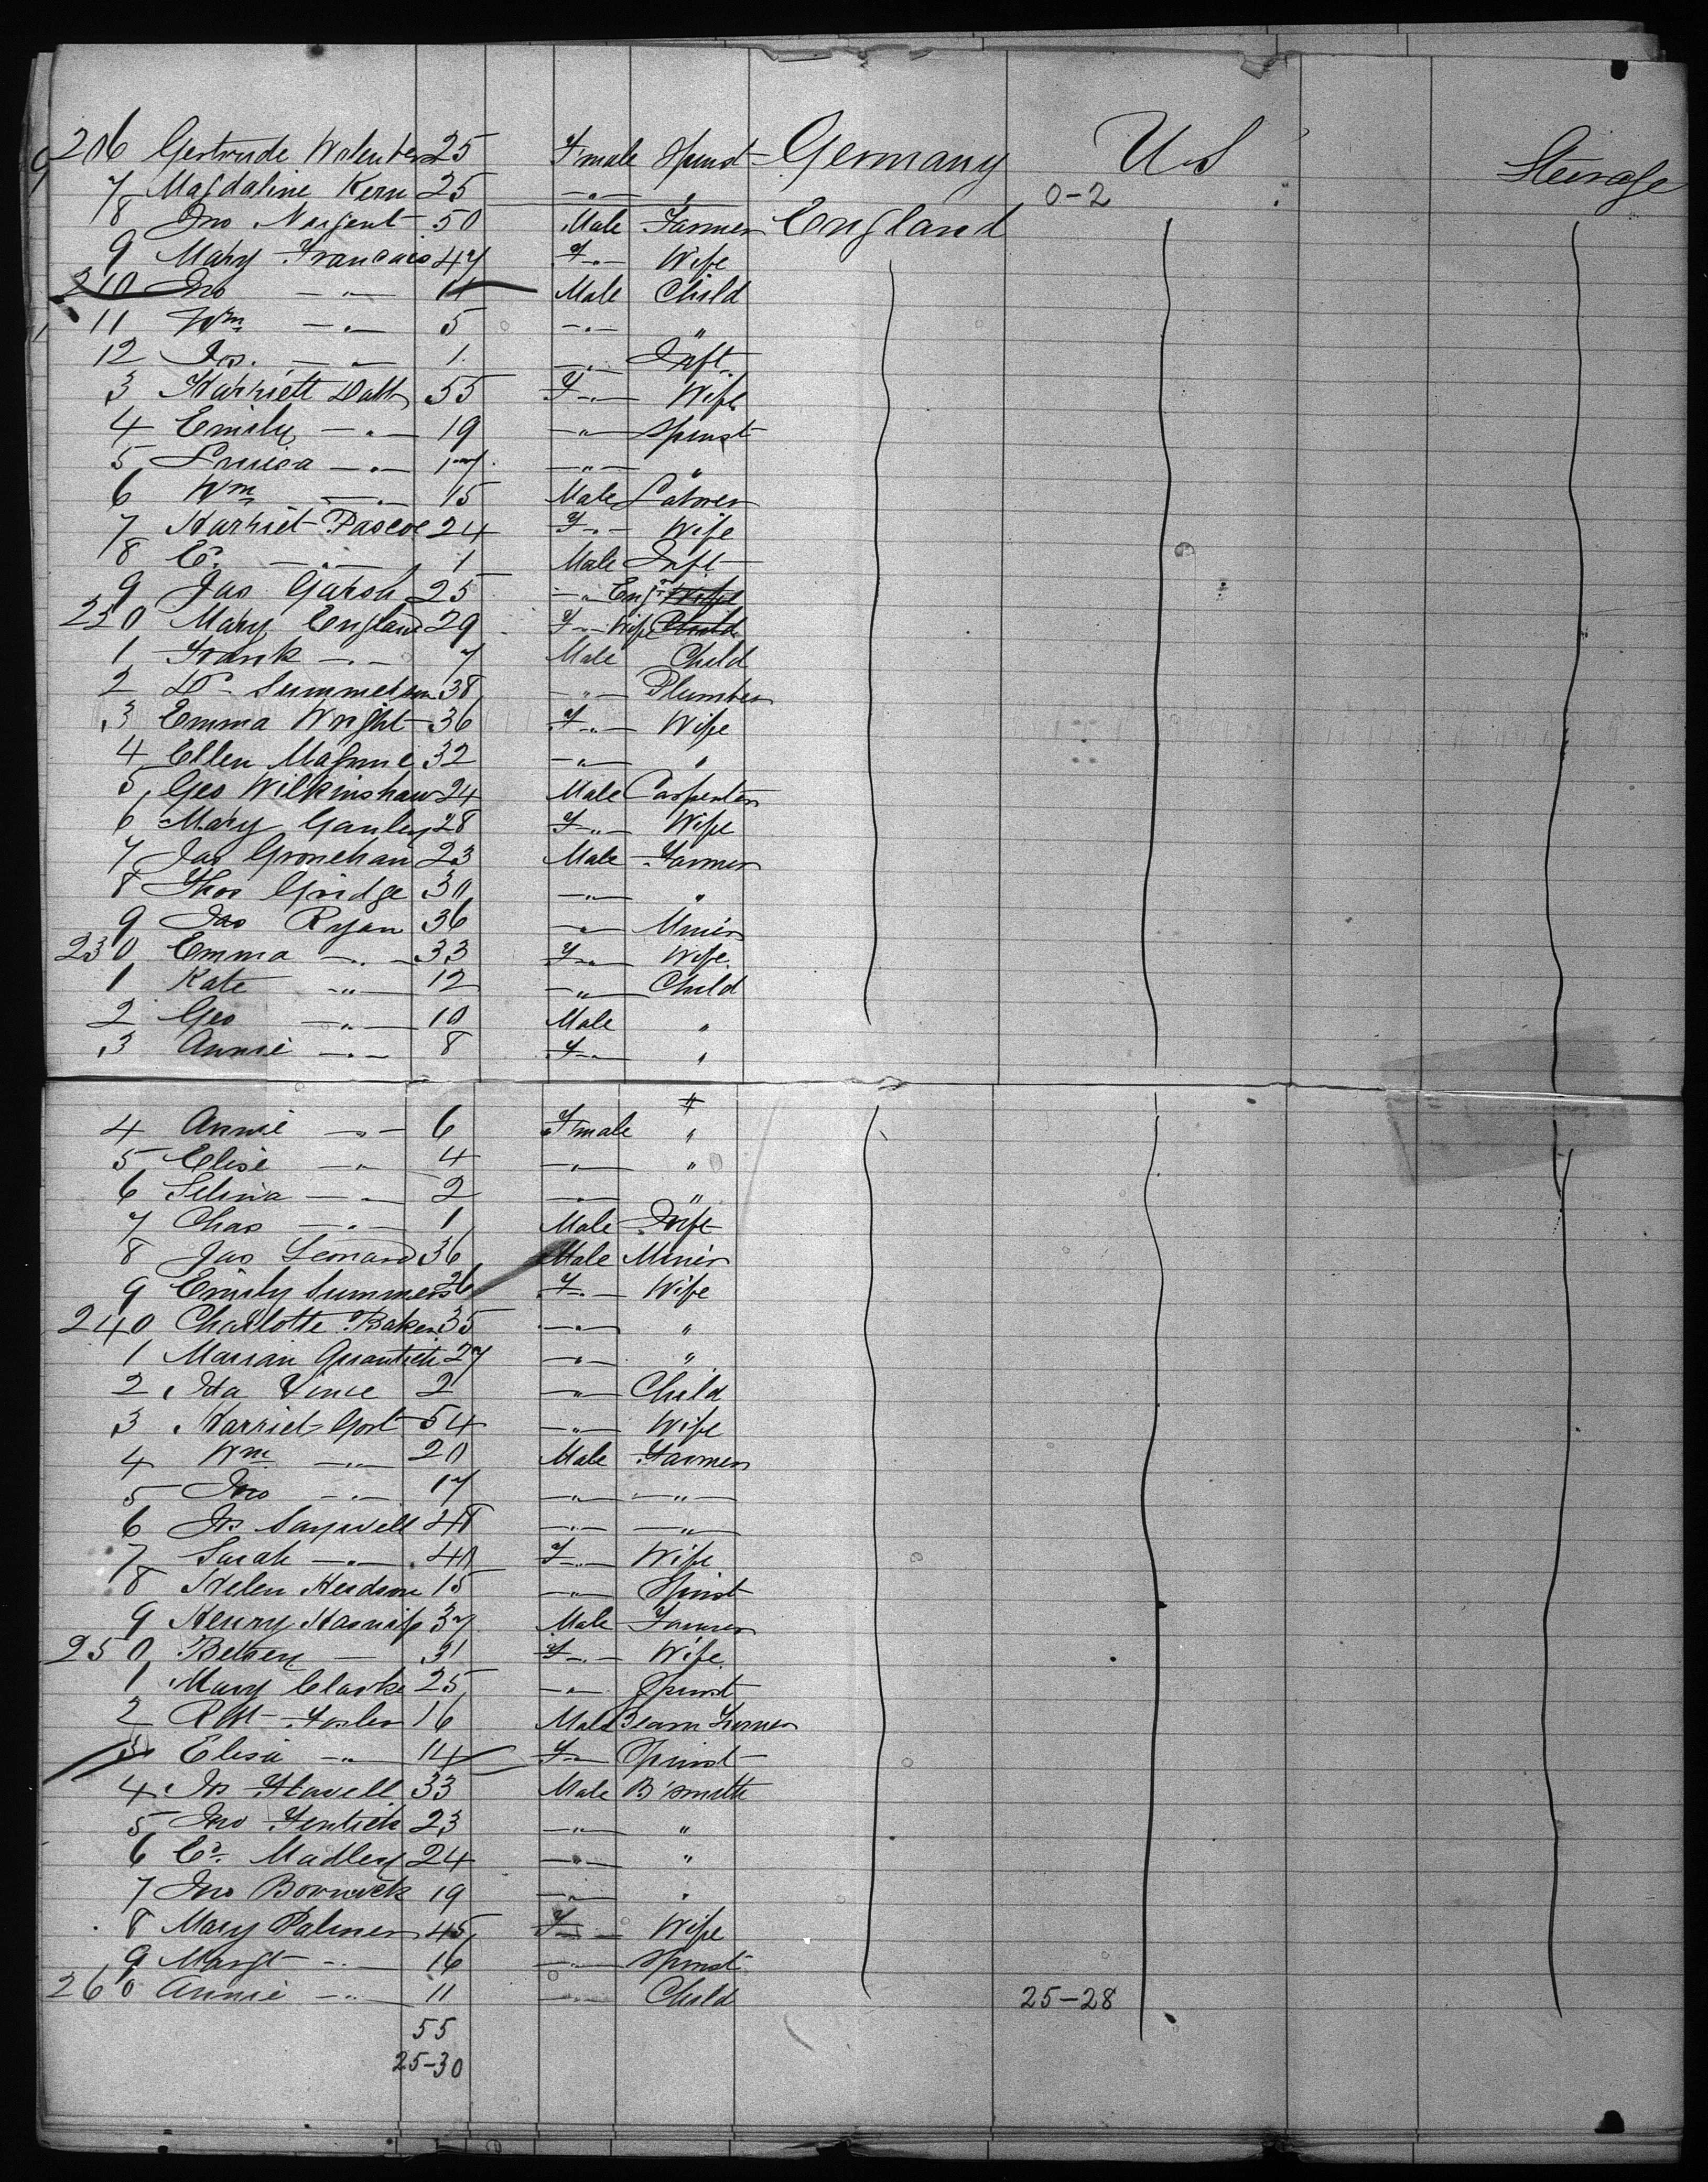 206 Gertrude 25 Fmale Spinst Germany US Steerage
7 Magdaline Kern 25 —"— " 0-2
8 Jno Nargent 50 Male Farmer England
9 Mary Francais 47 F—"— Wife
210 Jno —"— 11 Male Child
11 Wm —"— 5 —"— "
12 Jos. —"— 1 —"— Inft.
3 Harriett Dabb 35 F—"— Wife
4 Emily —"— 19 —"— Spinst
5 Louisa —"— 17 —"— "
6 Wm —"— 15 Male Laborer
7 Harriet Pascoe 24 F—"— Wife
8 Ed. —"— 1 Male Inft
9 Jas 25 —"— Engr Wife
220 Mary England 29 F—"— Wife Child
1 Frank —"— 7 Male Child
2 38 —"— Plumber
3 Emma Wright 36 F—"— Wife
4 Ellen Maguire 32 —"— "
5 Geo Wilkinshaw 24 Male Carpenter
6 Mary Ganley 28 F—"— Wife
7 Jas Gronehan 23 Male Farmer
8 Thos Gridge 30 —"— "
9 Jas Ryan 36 —"— Miner
230 Emma —"— 33 F—"— Wife
1 Kate —"— 12 —"— Child
2 Geo —"— 10 Male "
3 Annie —"— 8 F—"— "
4 Annie —"— 6 Fmale "
5 Elise —"— 4 —"— "
6 Selina —"— 2 —"— "
7 Chas —"— 1 Male Inft
8 Jas Leonard 36 Male Miner
9 Emily Summers 26 F—"— Wife
240 Charlotte Baker 35 —"— "
1 Marian 27 —"— "
2 Ida Vince 2 —"— Child
3 Harriet Gort 54 —"— Wife
4 Wm —"— 20 Male Farmer
5 Jno —"— 17 —"— —"—
6 Jos Saywell 48 —"— —"—
7 Sarah —"— 40 F—"— Wife
8 Helen 15 —"— Spinst
9 Henry 37 Male Farmer
250 Betsey — 31 F—"— Wife
1 Mary Clarke 25 —"— Spinst
2 16 Male
3 Elisa —"— 14 F—"— Spinst
4 Jos Flavell 33 Male B'smith
5 Jno 23 —"— "
6 Ed. Madley 24 —"— "
7 Jno 19 —"— "
8 Mary Palmer 45 F—"— Wife
9 Margt —"— 16 —"— Spinst
260 Annie —"— 11 —"— Child 25-28
55
25-30